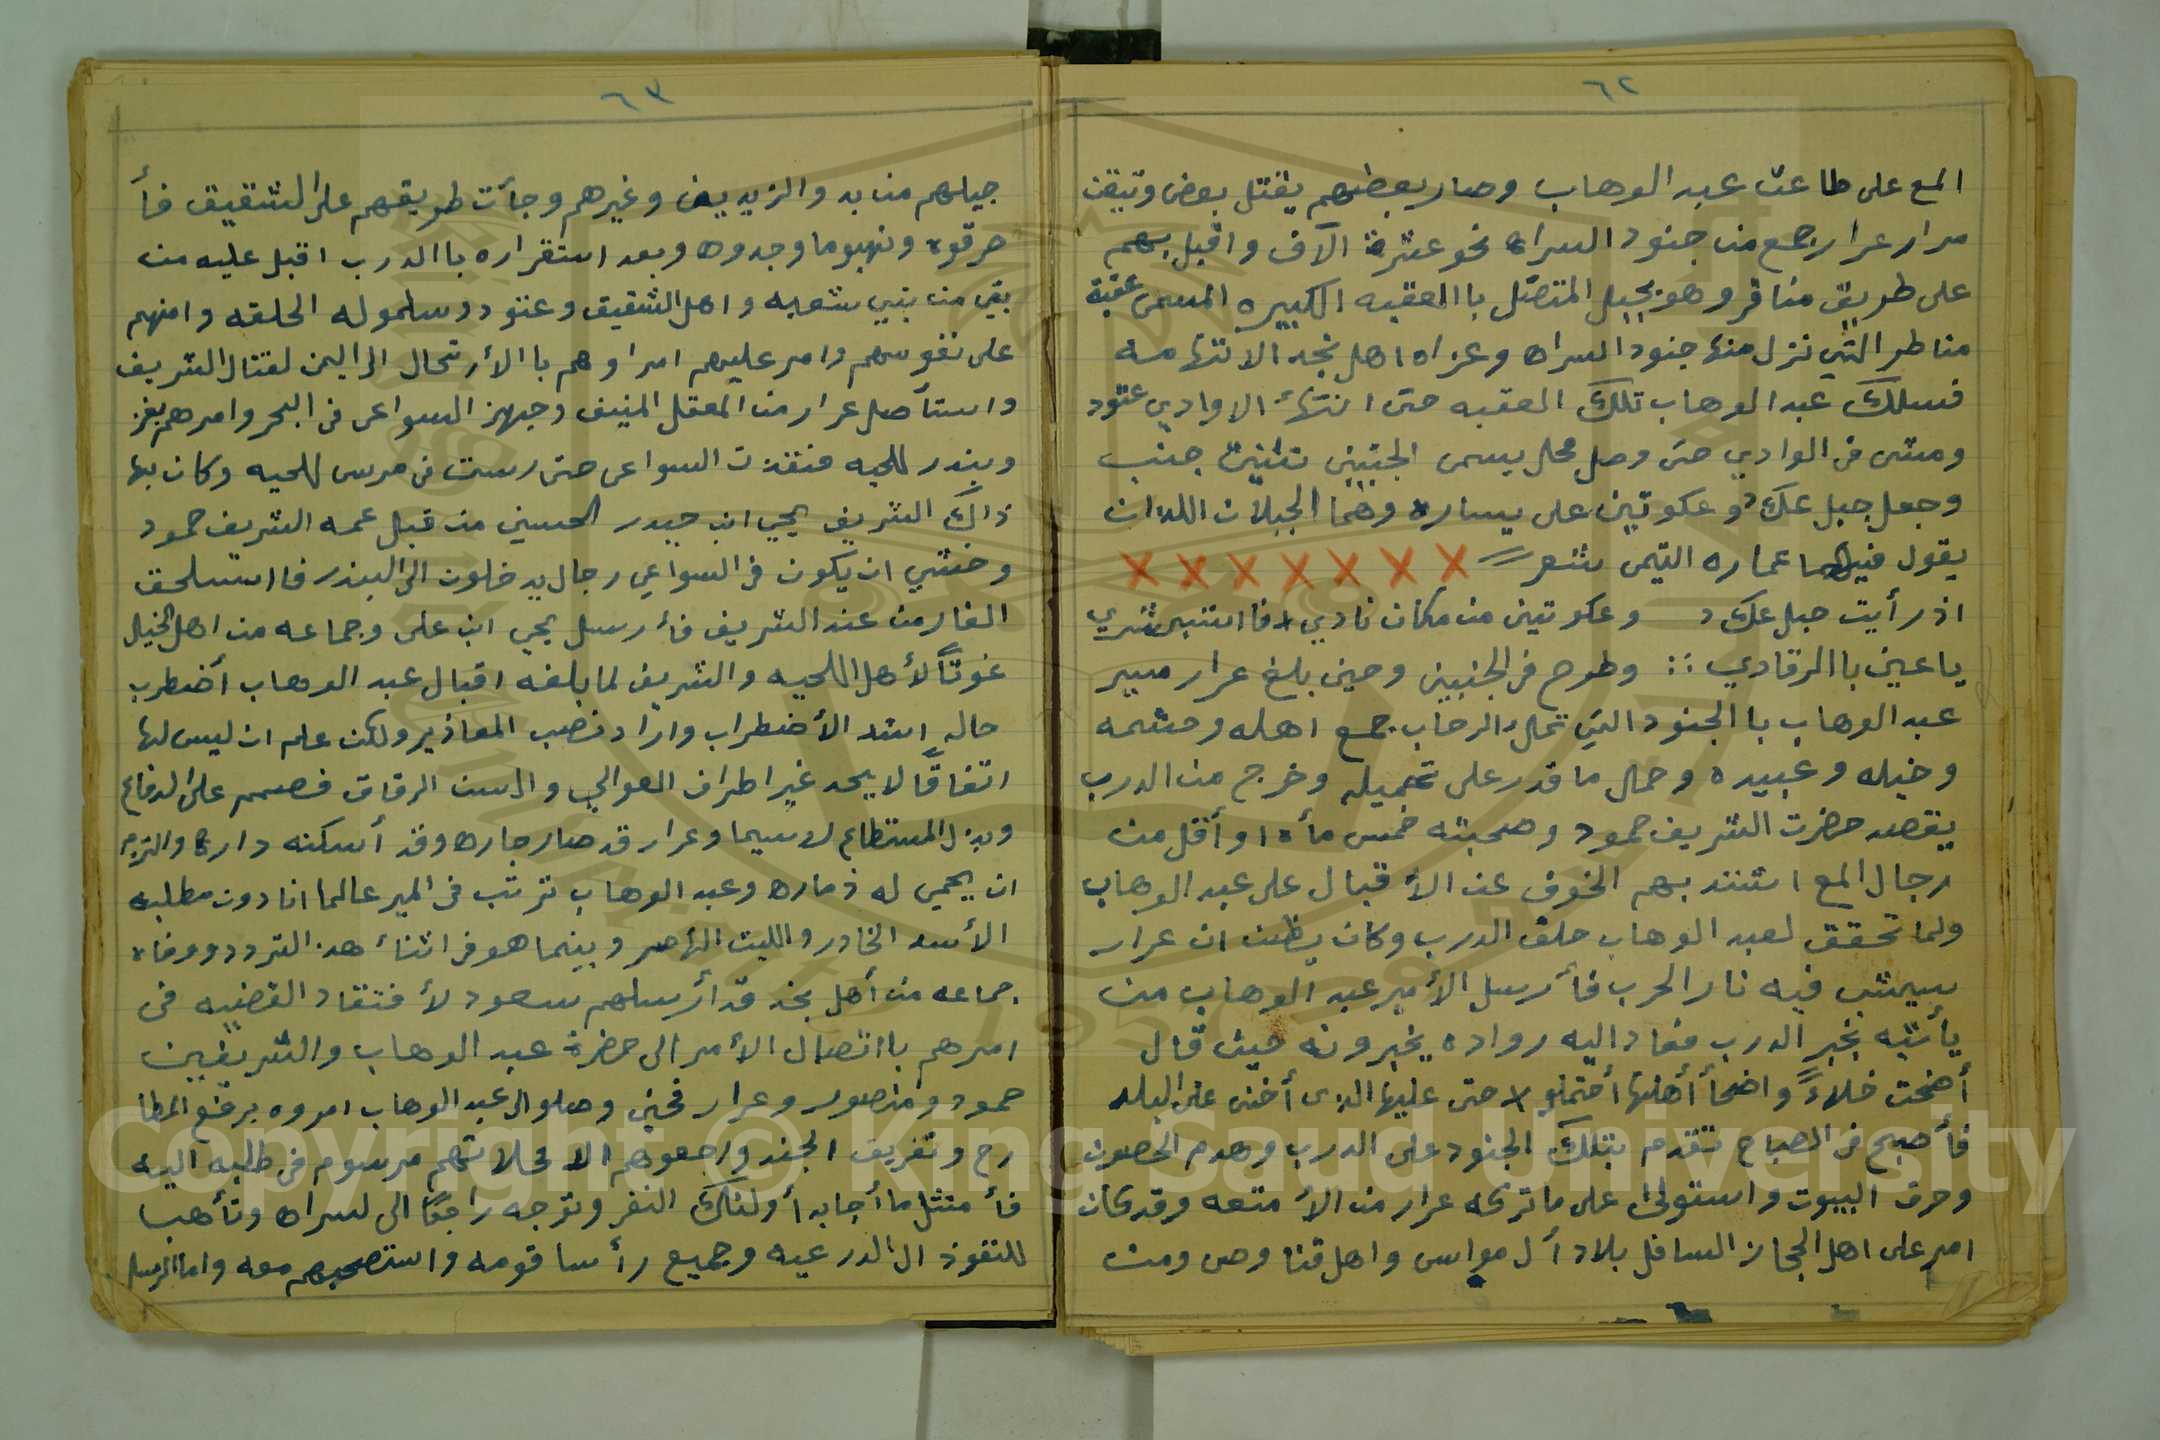 ٦٢
المع على طاعت عبد الوهاب وصار بعظهم يقتل بعض وتيقن
مراد عرار جمع من جنود السراه نحو عشرة الآف واقبل بهم
على طريق مناظر وهو بجبل المتصل باالعقبه الكبيره المسمى عقبة
مناظر التي نزل منها جنود السراه وعزاه اهل نجد الا تنهامه
فسلك عبد الوهاب تلك العقبه حتى انتهاْ الا وادي عتود
ومشى في الوادي حتى وصل محل يسمى الجنبين تثنيت جنب
وجعل جبل عكاد وعكوتين على يساره وهما الجبلان اللذان
يقول فيهما عماره اليمني شعر
اذ رأيت جبل عكاد وعكوتين من مكان نادي فاابشري
ياعين باالرقادي : وطرح في الجنبين وحين بلغ عرار مسير
عبد الوهاب باالجنود التي تملأ الرحاب جمع اهله وحشمه
وخيله وعبيده وحمل ما قدر على تحميله وخرج من الدرب
يقصد حضرت الشريف حمود وصحبته خمس مأه او أقل من
رجال المع اشتد بهم الخوف عن الأقبال على عبد الوهاب
ولما تحقق لعبد الوهاب خلو الدرب وكان يظن ان عرار
سيشب فيه نار الحرب فأرسل الأمير عبد الوهاب من
يأتيه بخبر الدرب فعاد اليه رواده يخبرونه حيث قال
أضحت خلاءً واضحاً أهلها أحتملو أخنى عليها الذى أخنى على لبد
فأصبح في الصباح تقدم بتلك الجنود على الدرب وهدم الحصون
وحرق البيوت واستولى على ماتركه عرار من الأمتعه وقد كان
امر على اهل الحجاز السافل بلاد أل مواس واهل قنا وص ومن
٦٣
جيلهم من بد والزيديين وغيرهم وجأت طريقهم على الشقيق فأ
حرقوه ونهبو ما وجدوه وبعد استقراره باالدرب اقبل عليه من
بقي من بني شعبه واهل الشقيق وعتود وسلمو له الحلقه وامنهم
على نفوسهم وامر عليهم امرا وهم باالأرتحال الى اليمن لقتال الشريف
واستأصل عرار من المعقل المنيف وجهز السواعي في البحر وامرهم بغز
وبندر للحيه فنفذت السواعى حتى رست في مرسى للحيه وكان بها
ذاك الشريف يحيى ابن حيدر الحسيني من قبل عمه الشريف حمود
وخشي ان يكون في السواعي رجال يدخلون الى البندر فااستلحق
الغار من عند الشريف فأرسل يحي ابن على وجماعه من اهل الخيل
غوثاً لأهل اللحيه والشريف لما بلغه اقبال عبد الوهاب أضطرب
حاله اشد الأضطراب واراد نصب المعاذير ولكن علم ان ليس لها
اتفاقاً لا يحد غير اطراف العوالي والسن الرقاق فصمم على الدفاع
وبذل المستطاع لاسيما وعرار قد صار جاره وقد أسكنه داره والتزم
ان يحمي له ذماره وعبد الوهاب ترتب في المير عالما انا دون مطلبه
الأسد الخادر والليث الهاصر وبينما هو في اثنأ هذ التردد ووفاه
جماعه من أهل نجد قد أرسلهم سعود لأفتقاد القضيه في
امرهم بااتصال الأمر الى حضرة عبد الوهاب والشريفين
حمود ومنصور وعرار فحين وصلو الى عبد الوهاب امروه برفع المطا
رح وتفريق الجند وارجعوهم الا محلاتهم مرسوم في طلبه اليه
فأمتثل ما أجابه أولئك النفر وتوجه راجعاً الى لسراه وتأهب
للنفوذ الى الدرعيه وجميع رأسا قومه واستصحبهم معه واما الرسل